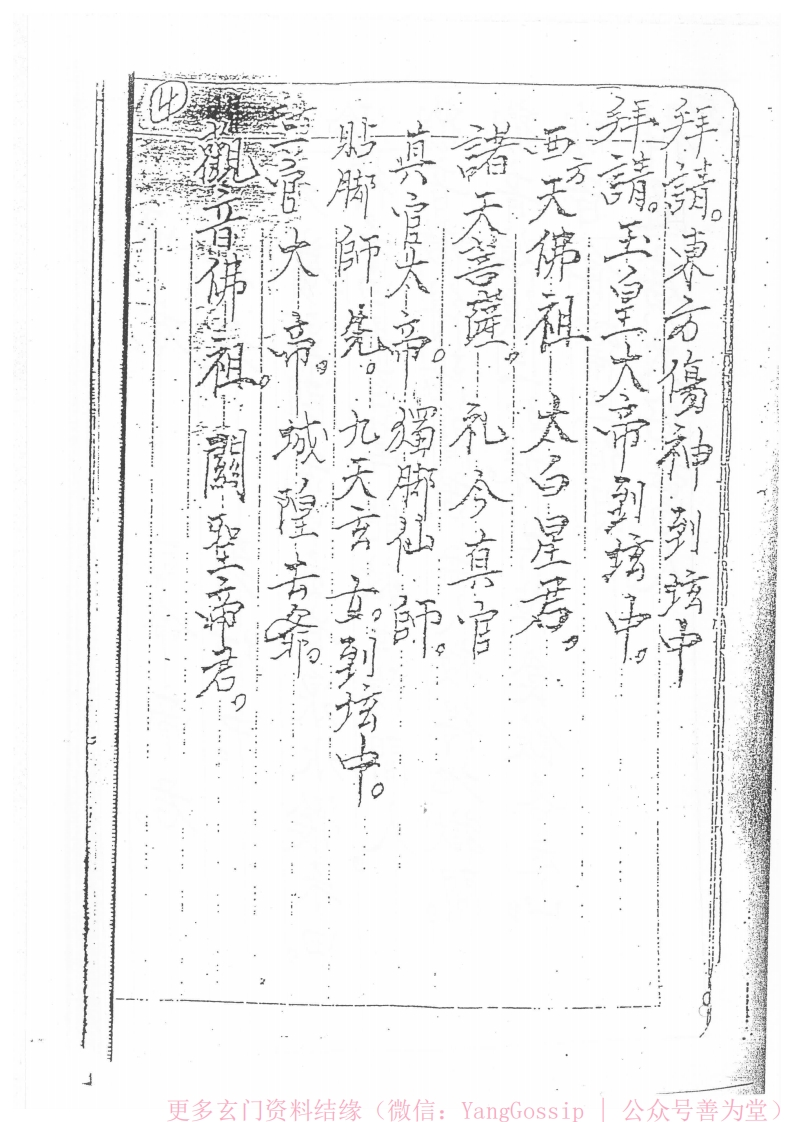 ④
拜請。東方傷神到坛中
拜請。玉皇大帝到坛中。
西方天佛祖 太白星君。
諸天菩薩。礼今真官
真官大帝。獨脚仙師。
貼脚師 。九天玄女。到坛中。
官大帝。城隍 爺。
觀音佛祖。關聖帝君。
更多玄门资料结缘（微信：YangGossip | 公众号善为堂）